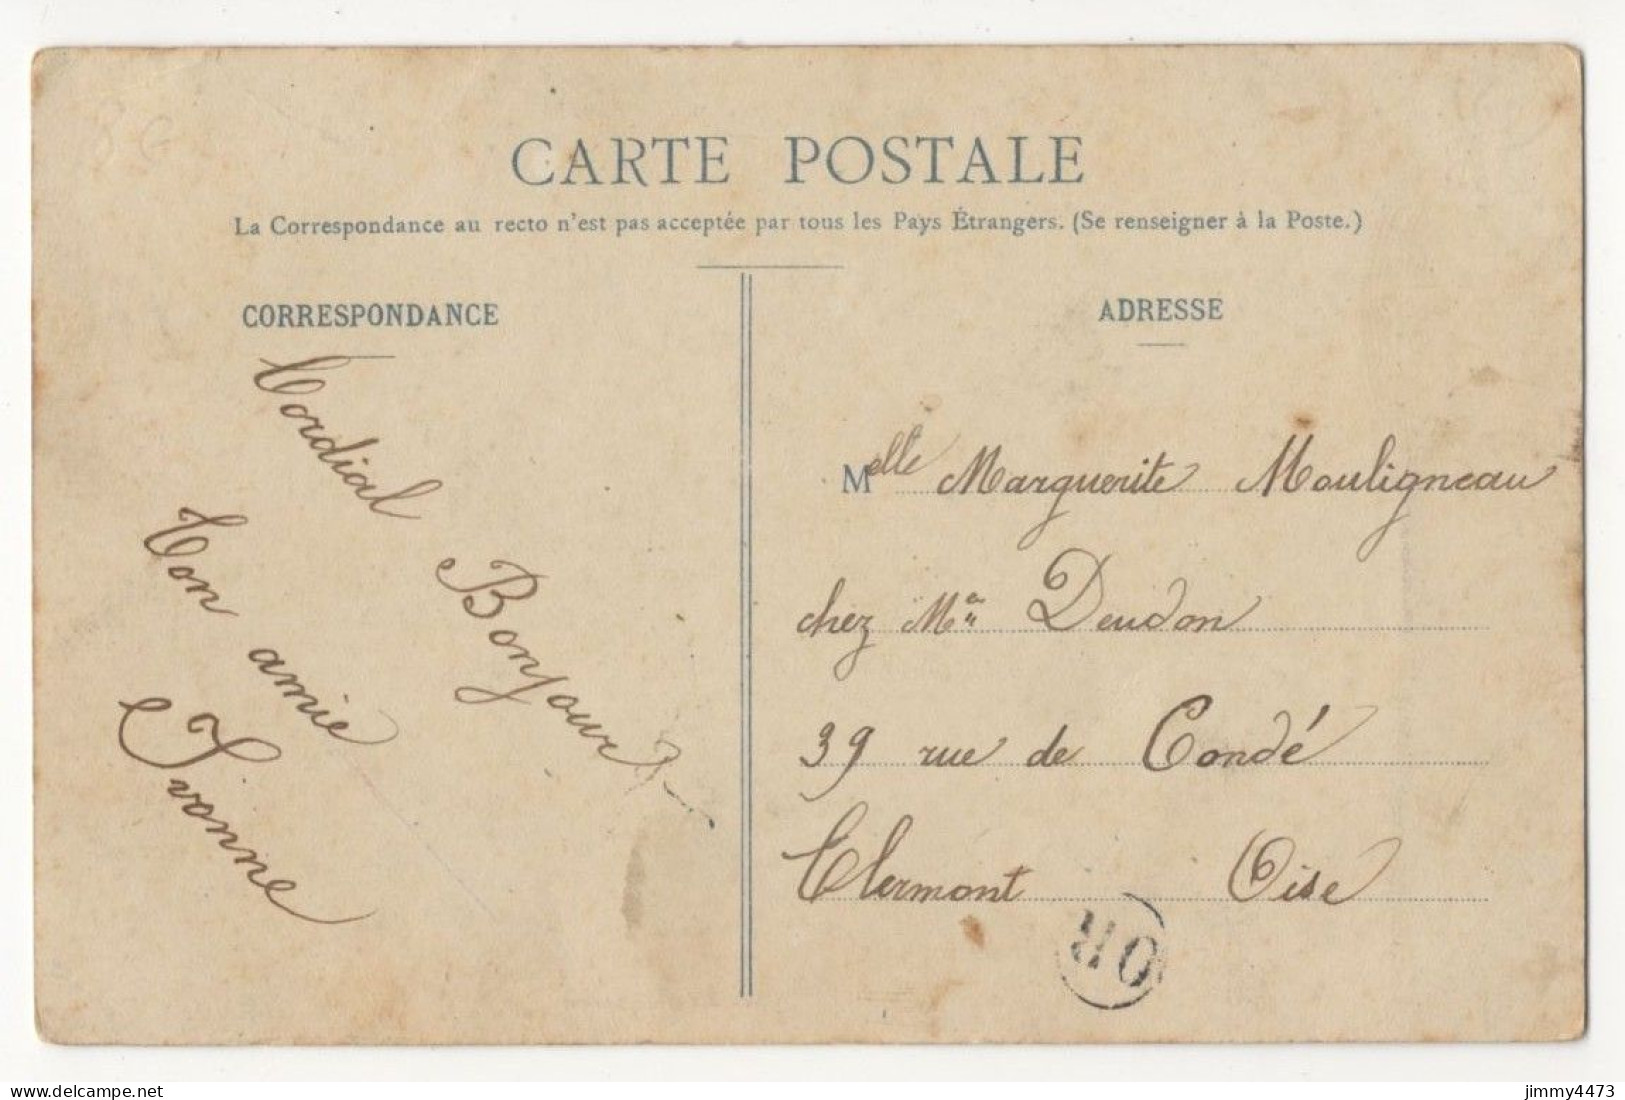 CARTE POSTALE
La Correspondance au recto n'est pas acceptée par tous les Pays Étrangers. (Se renseigner à la Poste.)
CORRESPONDANCE
Cordial Bonjour
Ton amie
Ivonne
ADRESSE
Melle Marguerite Mouligneau
chez Me Deudon
39 rue de Condé
Clermont Oise
OR
jimmy4473